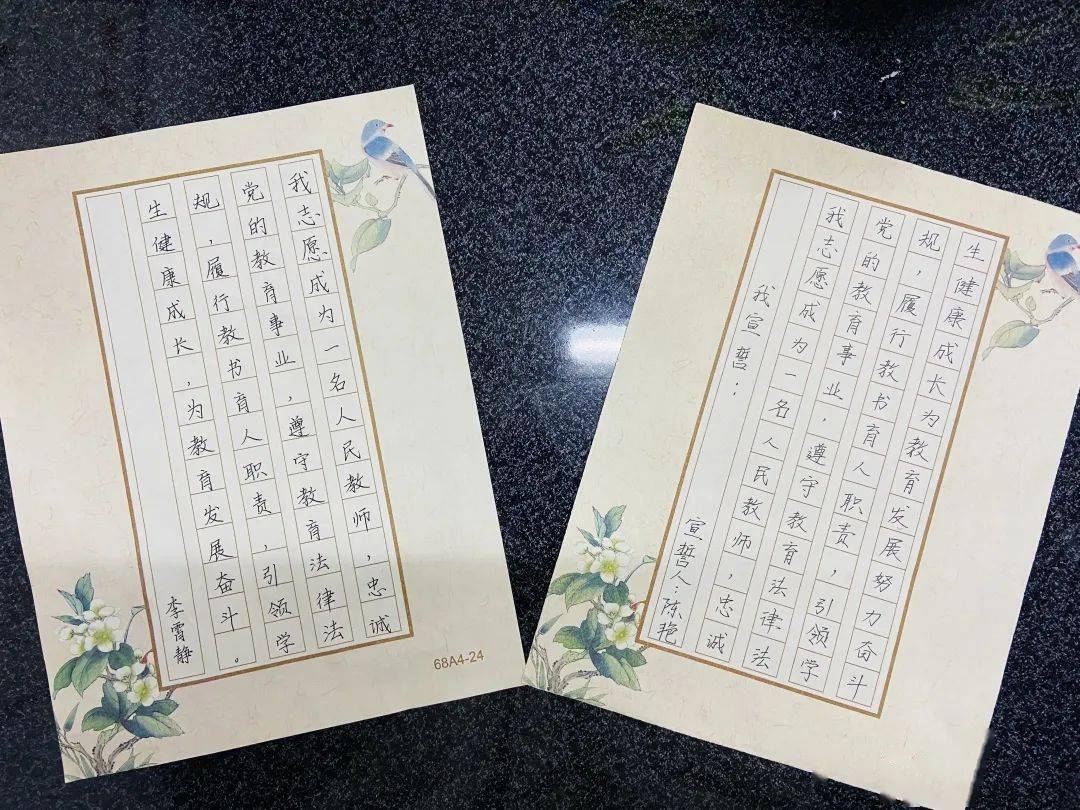 我志愿成为一名人民教师，忠诚
党的教育事业，遵守教育法律法
规，履行教书育人职责，引领学
生健康成长，为教育发展奋斗。
李霄静
68A4-24
我宣誓：
我志愿成为一名人民教师，忠诚
党的教育事业，遵守教育法律法
规，履行教书育人职责，引领学
生健康成长为教育发展努力奋斗
宣誓人：陈艳